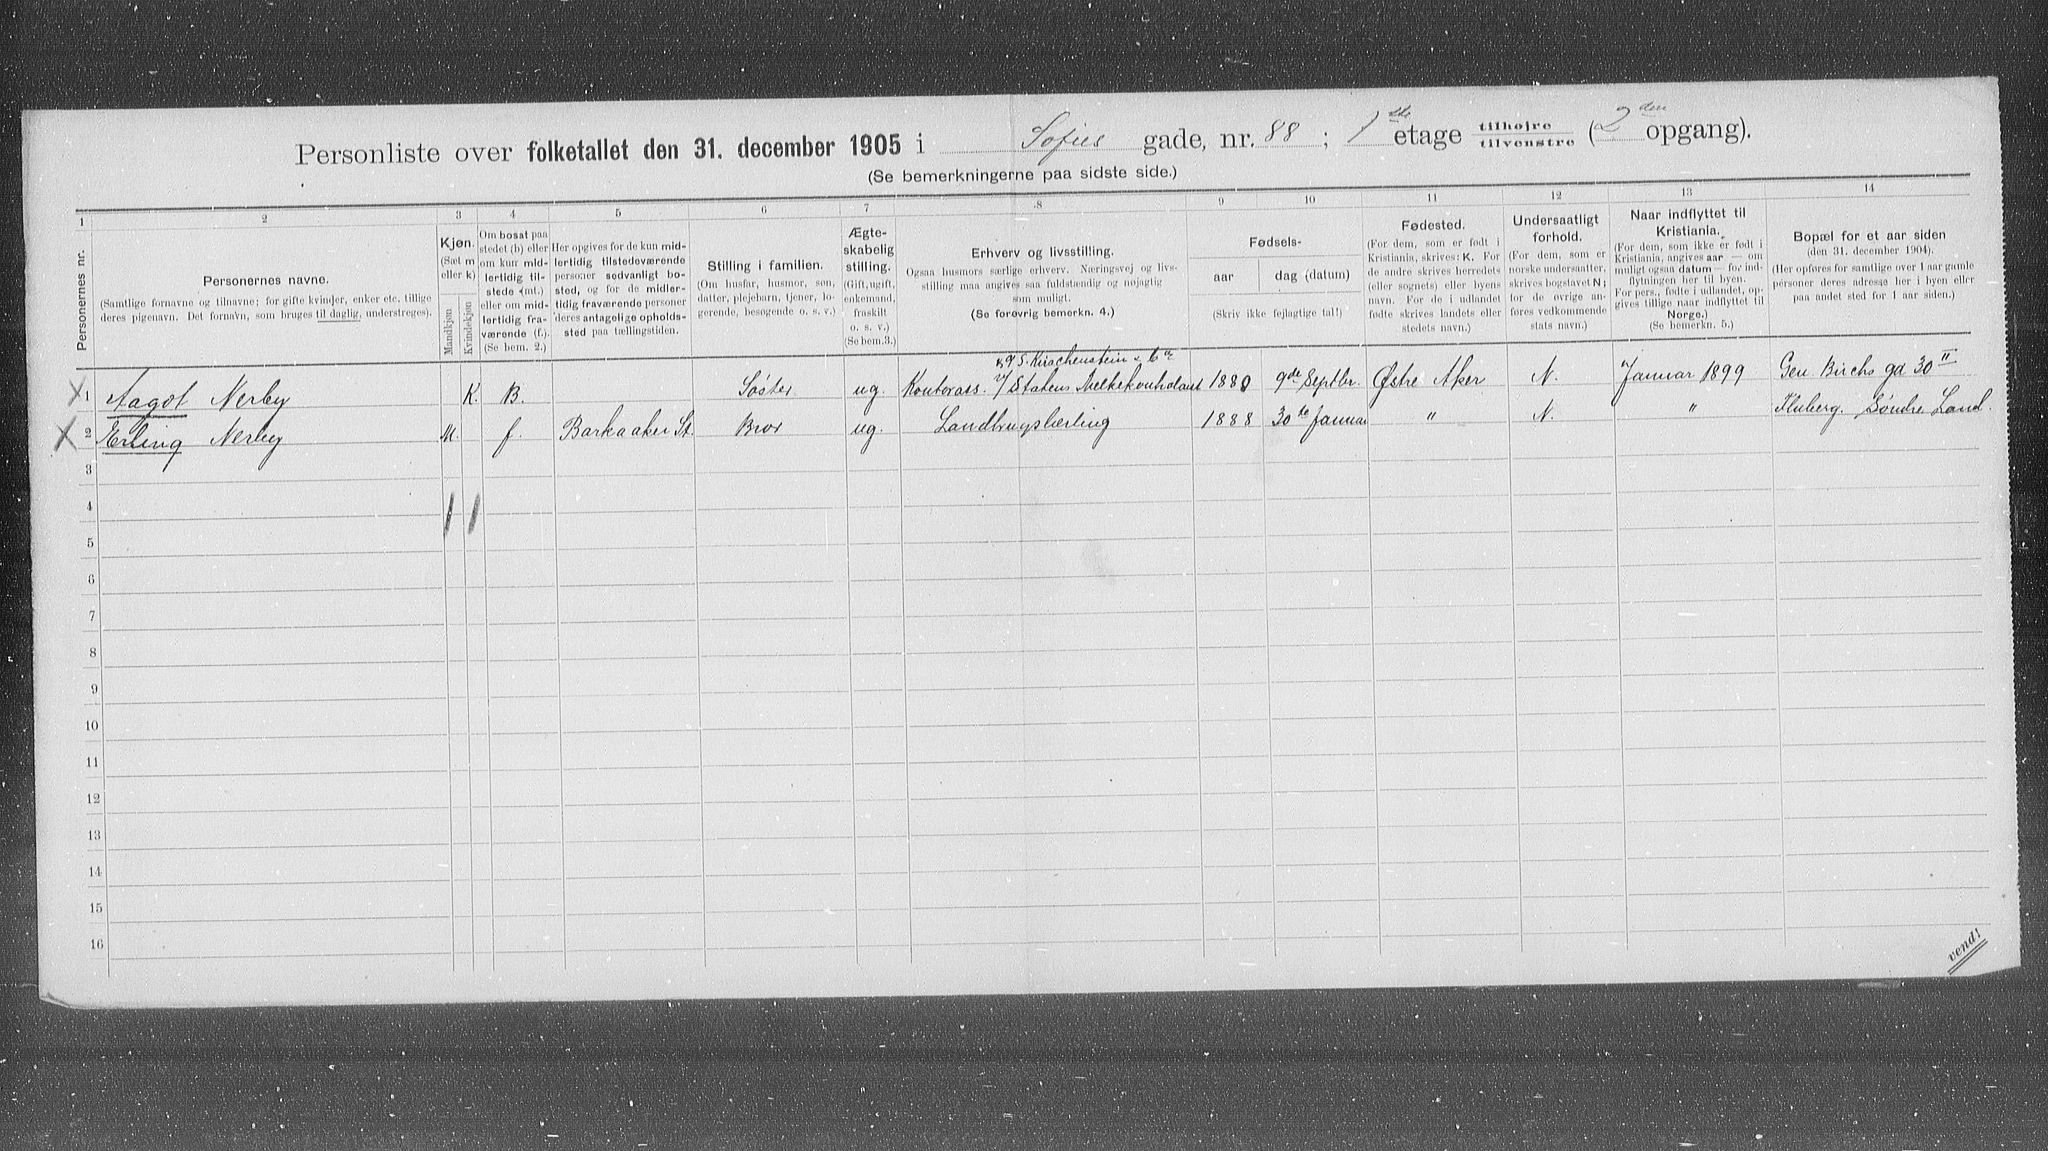 Personliste over folketallet den 31. december 1905 i Sofies gade, nr. 88; 1ste etage tilhøjre tilvenstre (2den opgang).
(Se bemerkningerne paa sidste side.)
1 2 3 4 5 6 7 8 9 10 11 12 13 14
Personernes nr.
Personernes navne.
(Samtlige fornavne og tilnavne; for gifte kvinder, enker etc. tillige
deres pigenavn. Det fornavn, som bruges til daglig, understreges).
Kjøn.
(Sæt m
eller k)
Mandkjøn
Kvindekjøn
Om bosat paa
stedet (b) eller
om kun mid-
lertidig til-
stede (mt.)
eller om mid-
lertidig fra-
værende (f.).
(Se bem. 2.)
Her opgives for de kun mid-
lertidig tilstedeværende
personer sedvanligt bo-
sted, og for de midler-
tidig fraværende personer
deres antagelige opholds-
sted paa tællingstiden.
Stilling i familien.
(Om husfar, husmor, søn,
datter, plejebarn, tjener, lo-
gerende, besøgende o. s. v.)
Ægte-
skabelig
stilling.
(Gift, ugift,
enkemand,
fraskilt
o. s. v.)
(Se bem.3.)
Erhverv og livsstilling.
Ogsaa husmors særlige erhverv. Næringsvej og livs-
stilling maa angives saa fuldstændig og nøjagtig
som muligt.
(Se forøvrig bemerkn. 4.)
Fødsels-
aar
dag (datum)
(Skriv ikke fejlagtige tal!)
Fødested.
(For dem, som er født i
Kristiania, skrives: K. For
de andre skrives herredets
(eller sognets) eller byens
navn. For de i udlandet
fødte skrives landets eller
stedets navn.)
Undersaatligt
forhold.
(For dem, som er
norske undersaatter,
skrives bogstavet N;
for de øvrige an-
føres vedkommende
stats navn.)
Naar indflyttet til
Kristiania.
(For dem, som ikke er født i
Kristiania, angives aar — om
muligt ogsaa datum — for ind-
flytningen her til byen.
For pers., fødte i udlandet, op-
gives tillige naar indflyttet til
Norge.)
(Se bemerkn. 5.)
Bopæl for et aar siden
(den 31. december 1904).
(Her opføres for samtlige over 1 aar gamle
personer deres adresse her i byen eller
paa andet sted for 1 aar siden.)
Kirschenstein & Co
X 1 Aagot Nerby K. B. Søster ug. Kontorass. v/ Statens Melkekonkolant 1880 9de Septbr. Østre Aker N. Januar 1899 Gen Birchs gd 30 II
X 2 Erling Nerby M. f. Barkaaker St. Bror ug. Landbrugslærling 1888 30te Januar " N. " Fluberg. Søndre Land.
3
4 1 1
5
6
7
8
9
10
11
12
13
14
15
16
vend!